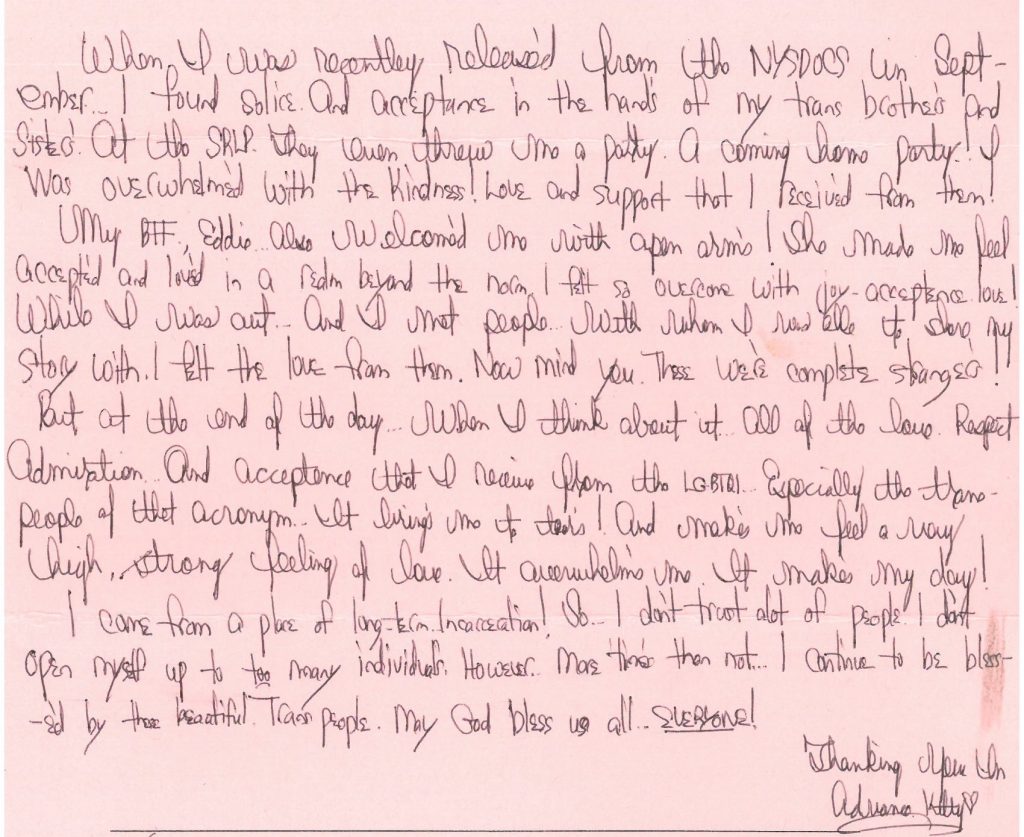 When I was recently released from the NYSDOCS in Sept-
ember... I found solice. And acceptance in the hands of my trans brother's and
Sister's. At the SRLP. They even threw me a party. A coming home party! I
was overwhelm'ed with the kindness! Love and support that I receiv'ed from them!
My BFF, Eddie.. also welcom'ed me with open arm's! She made me feel
accept'ed and lov'ed in a realm beyond the norm. I felt so overcome with joy-acceptance. love!
While I was out... And I met people... With whom I was able to share my
story with. I felt the love from them. Now mind you. These were complete stranger's!!
But at the end of the day... When I think about it... All of the love. Respect
Admiration.. And acceptance that I receive from the LGBTQI... Especially the trans-
people of that acronym... It bring's me to tear's! And make's me feel a very
high, strong feeling of love. It overwhelm's me. It makes my day!
I came from a place of long-term Incarceration! So... I don't trust alot of people. I don't
open myself up to too many individuals. However.. More time's than not... I continue to be bless-
-ed by these beautiful Trans people. May God bless us all... EVERYONE!
Thanking You In
Advance. Kitty♡